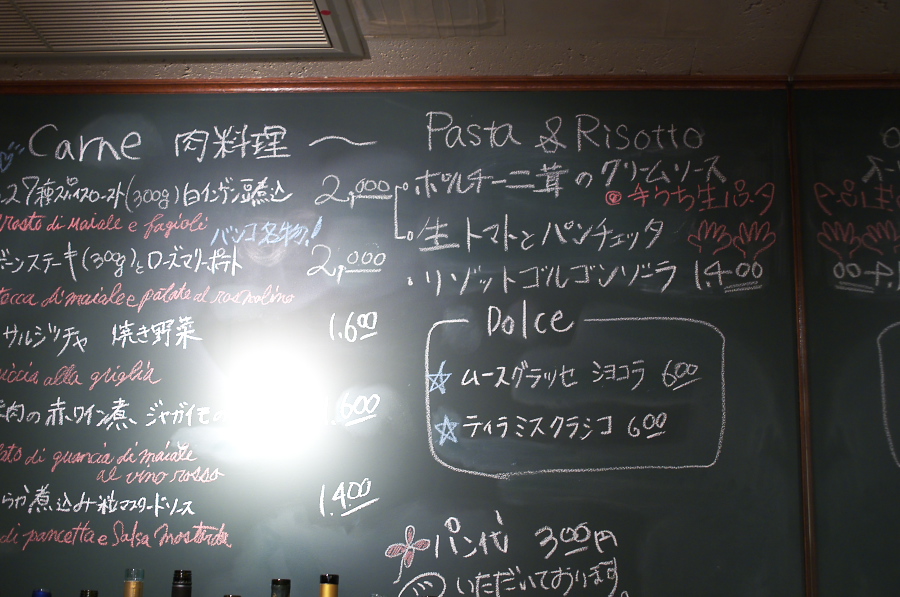 Carne 肉料理 〜
スパイスロースト(300g)白インゲン豆煮込 2,000
rrosto di maiale e fagioli
バンコ名物!
ステーキ(300g)とローズマリーポテト 2,000
tocca di maiale e patate al rosmalino
サルシッチャ 焼き野菜 1.600
uccia alla griglia
肉の赤ワイン煮、ジャガイモの 1.600
ato di guancia di maiale
al vino rosso
らか煮込み 粒マスタードソース 1.400
di pancetta e Salsa Mostarda
Pasta & Risotto
ポルチーニ茸のクリームソース
手うち生パスタ
生トマトとパンチェッタ
・リゾットゴルゴンゾーラ 1,400
Dolce
☆ ムースグラッセ ショコラ 600
☆ ティラミスクラシコ 600
パン代 300円
いただいております。